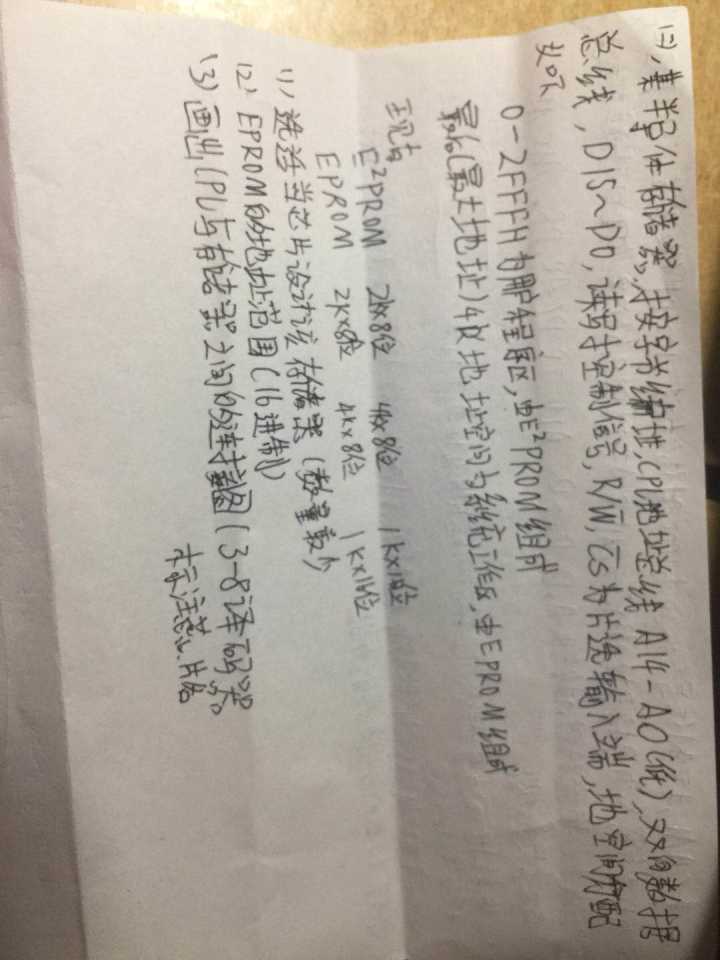 (二), 某半导体存储器,按字节编址,CPU地址总线A14-A0(低),双向数据
总线,D15~D0,读写控制信号,R/W,CS为片选输入端,地空间分配
如下
0-2FFFH为 程序区,由E²PROM组成
最后(最大地址)4K地址空间为系统工作区,由EPROM组成
现有
E²PROM 2k×8位 4k×8位 1k×16位
EPROM 2k×8位 4k×8位 1k×16位
(1) 选适当芯片设计该存储器(数量最少)
(2) EPROM的地址范围(16进制)
(3) 画出CPU与存储器之间的连接图(3-8译码器)
标注芯片名